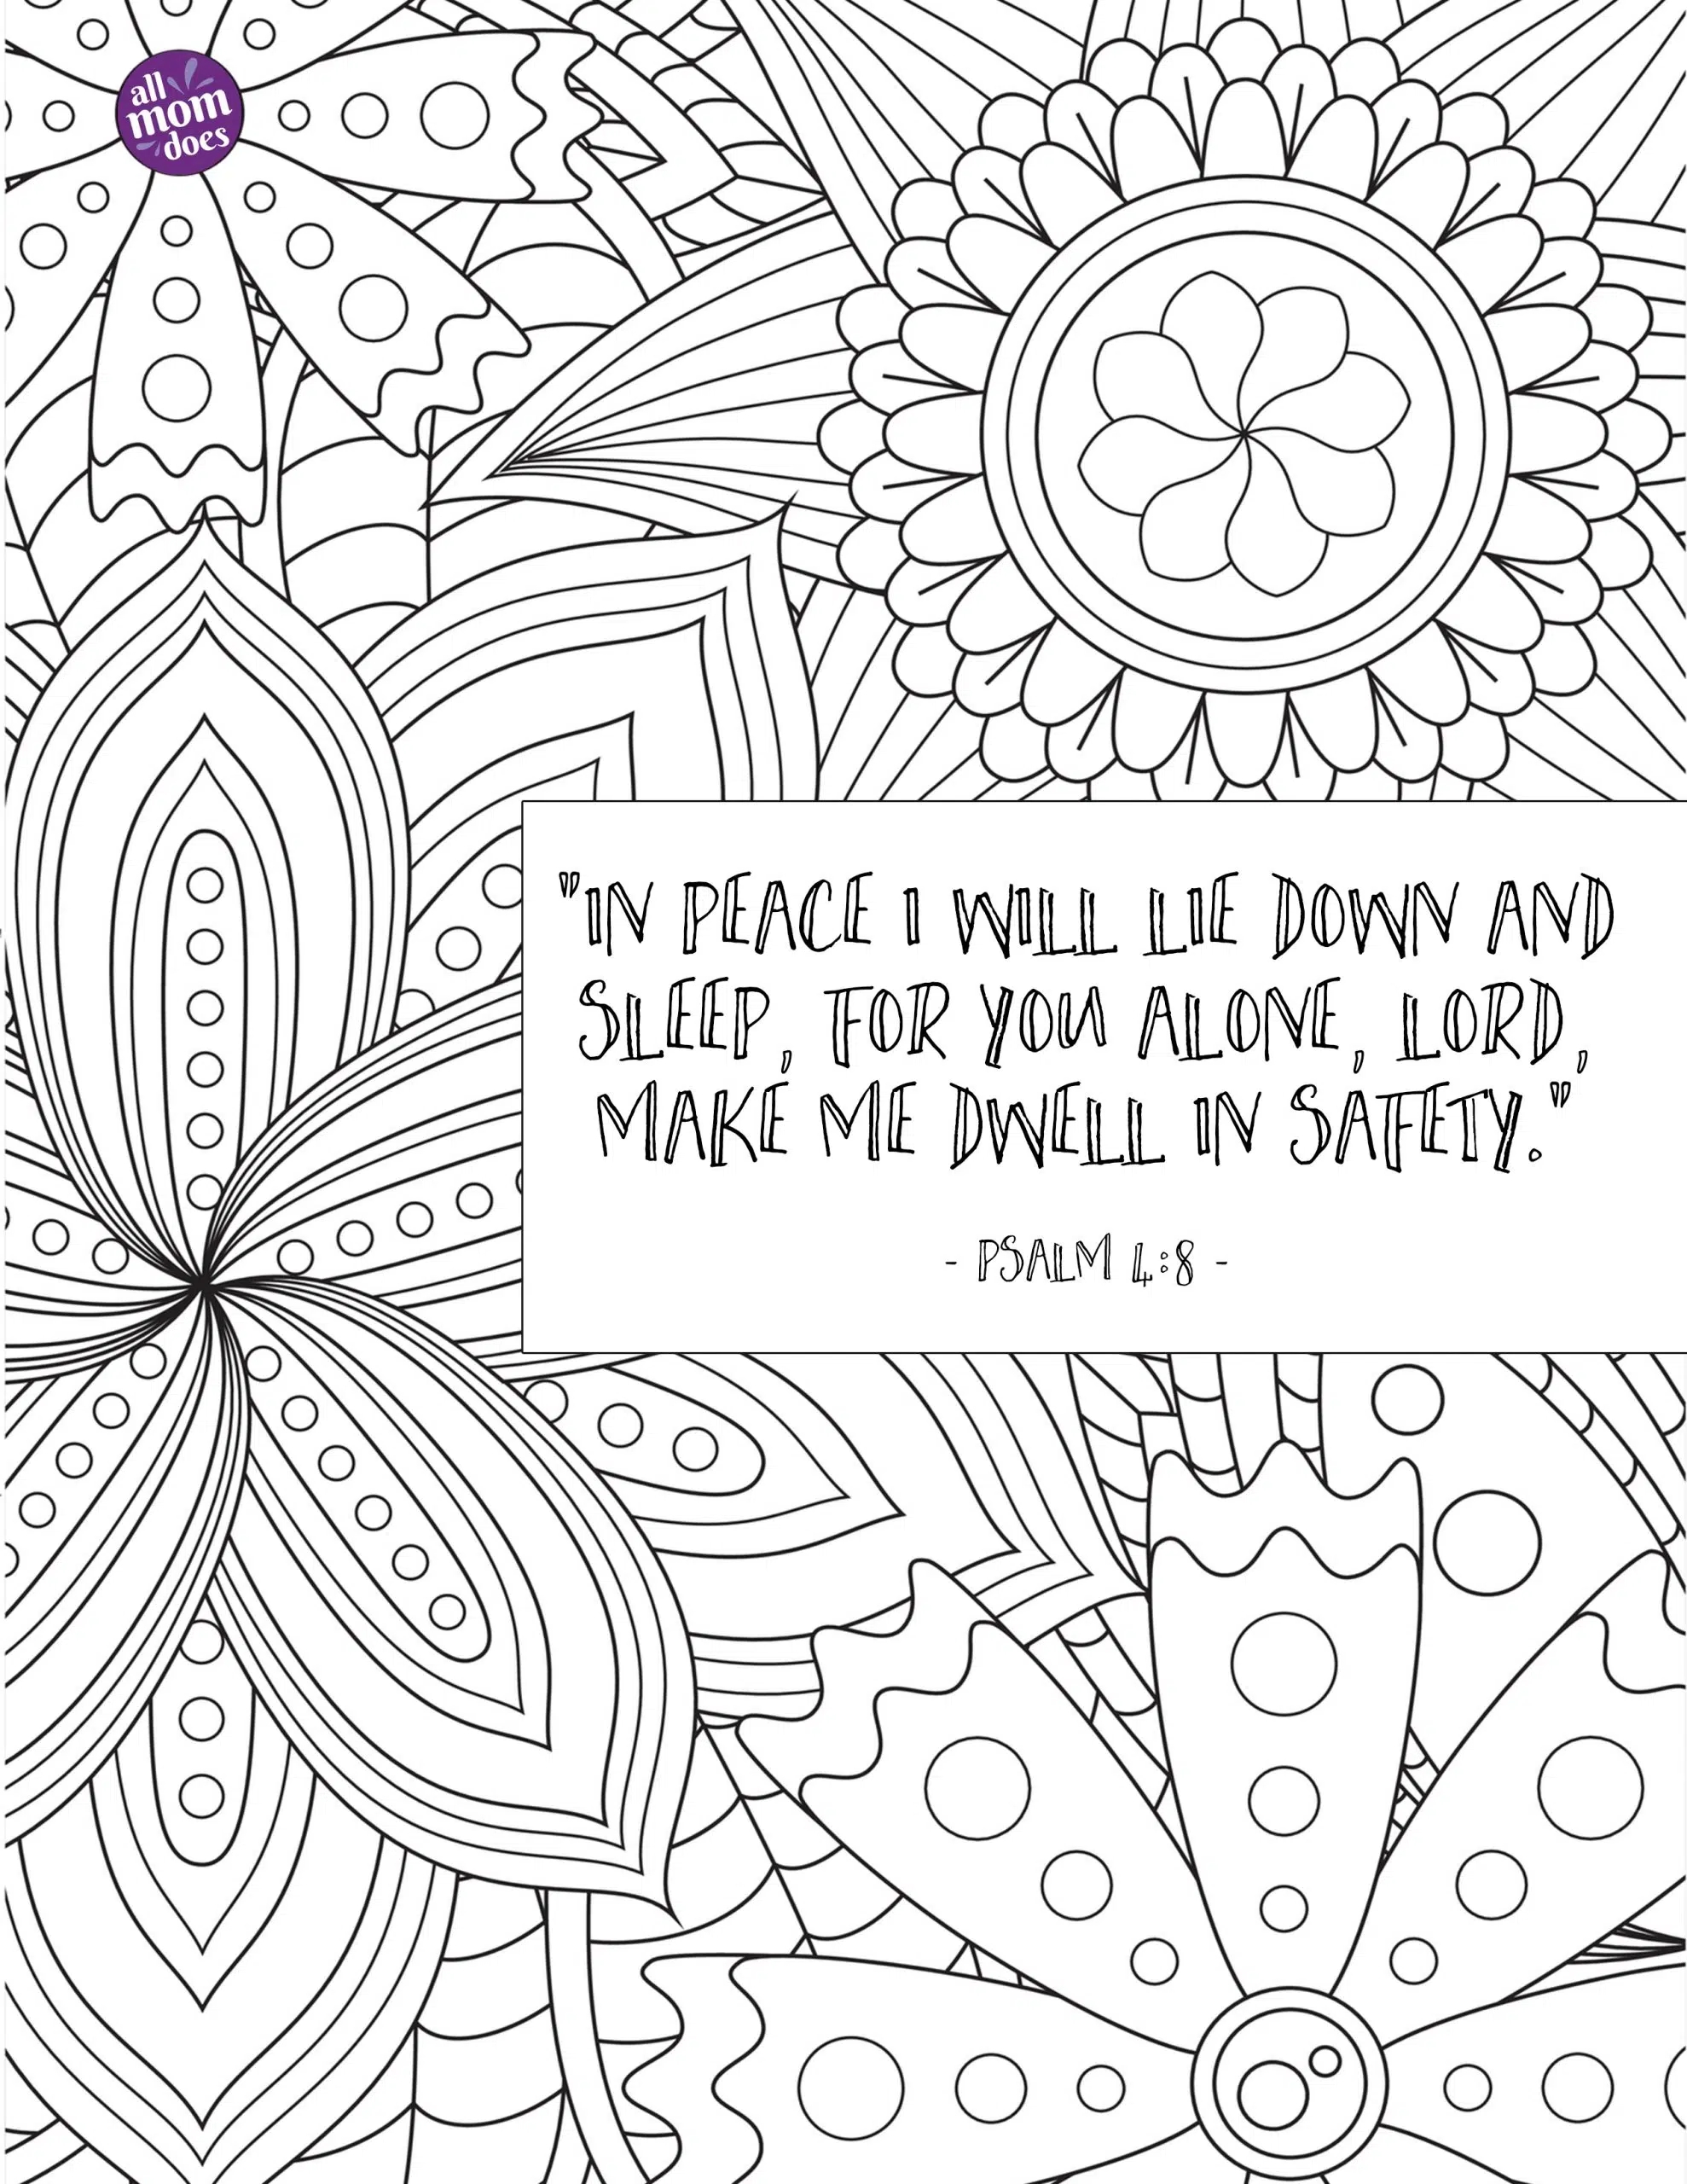 all
mom
does
"IN PEACE I WILL LIE DOWN AND
SLEEP, FOR YOU ALONE, LORD,
MAKE ME DWELL IN SAFETY."
- PSALM 4:8 -